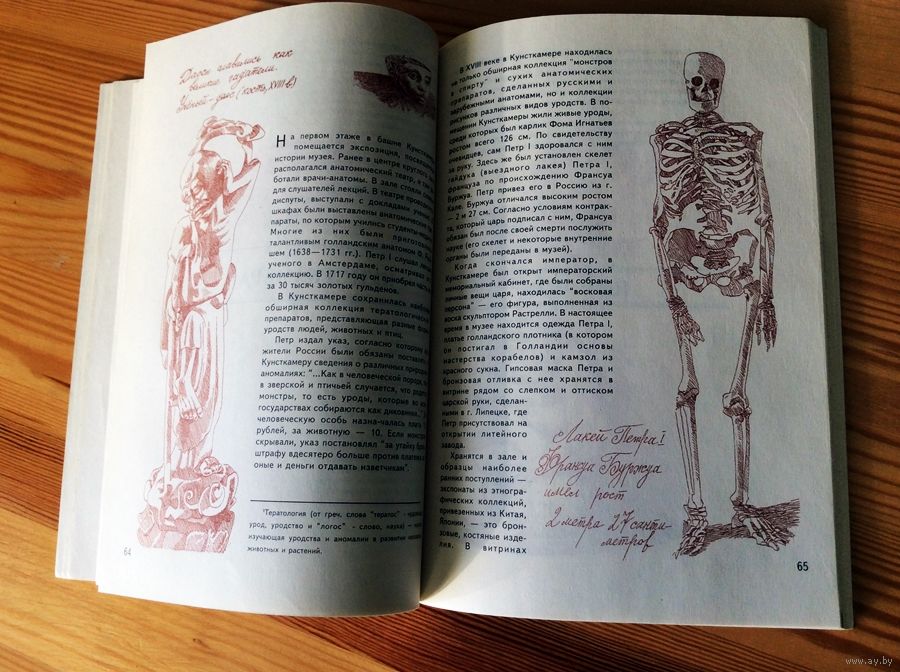 Даосы славились как
великие гадатели.
Учёный-даос (кость, XVIII в)
На первом этаже в башне Кунсткамеры
помещается экспозиция,
истории музея. Ранее в центре круглого
располагался анатомический театр, а
ботали врачи-анатомы. В зале стояли
для слушателей лекций. В театре
диспуты, выступали с докладами ученые
шкафах были выставлены анатомические
параты, по которым учились студенты
Многие из них были
талантливым голландским анатомом
шем (1638—1731 гг.). Петр I слушал
ученого в Амстердаме, осматривал
коллекцию. В 1717 году он приобрел
за 30 тысяч золотых гульденов.
В Кунсткамере сохранилась
обширная коллекция
препаратов, представляющая разные
уродств людей, животных и птиц.
Петр издал указ, согласно которому
жители России были обязаны
Кунсткамеру сведения о различных
аномалиях: "...Как в человеческой породе,
в зверской и птичьей случается, что
монстры, то есть уроды, которые во
государствах собираются как диковинки."
человеческую особь назначалась плата
рублей, за животную — 10. Если
скрывали, указ постановлял "за утайку
штрафу вдесятеро больше против платежа
оные и деньги отдавать изветчикам".
¹Тератология (от греч. слова "терапос" -
урод, уродство и "логос" - слово, наука) —
изучающая уродства и аномалии в развитии
животных и растений.
64
В XVIII веке в Кунсткамере находилась
не только обширная коллекция "монстров
в спирту" и сухих анатомических
препаратов, сделанных русскими и
зарубежными анатомами, но и коллекции
рисунков различных видов уродств. В по-
мещении Кунсткамеры жили живые уроды,
среди которых был карлик Фома Игнатьев
ростом всего 126 см. По свидетельству
очевидцев, сам Петр I здоровался с ним
за руку. Здесь же был установлен скелет
гайдука (выездного лакея) Петра I,
француза по происхождению Франсуа
Буржуа. Петр привез его в Россию из г.
Кале. Буржуа отличался высоким ростом
— 2 м 27 см. Согласно условиям контрак-
та, который царь подписал с ним, Франсуа
обязан был после своей смерти послужить
науке (его скелет и некоторые внутренние
органы были переданы в музей).
Когда скончался император, в
Кунсткамере был открыт императорский
мемориальный кабинет, где были собраны
личные вещи царя, находилась "восковая
персона" — его фигура, выполненная из
воска скульптором Растрелли. В настоящее
время в музее находится одежда Петра I,
платье голландского плотника (в котором
он постигал в Голландии основы
мастерства корабелов) и камзол из
красного сукна. Гипсовая маска Петра и
бронзовая отливка с нее хранятся в
витрине рядом со слепком и оттиском
царской руки, сделан-
ными в г. Липецке, где
Петр присутствовал на
открытии литейного
завода.
Хранятся в зале и
образцы наиболее
ранних поступлений —
экспонаты из этногра-
фических коллекций,
привезенных из Китая,
Японии, — это брон-
зовые, костяные изде-
лия. В витринах
Лакей Петра I
Франсуа Буржуа
имел рост
2 метра 27 санти-
метров
65
www.ay.by